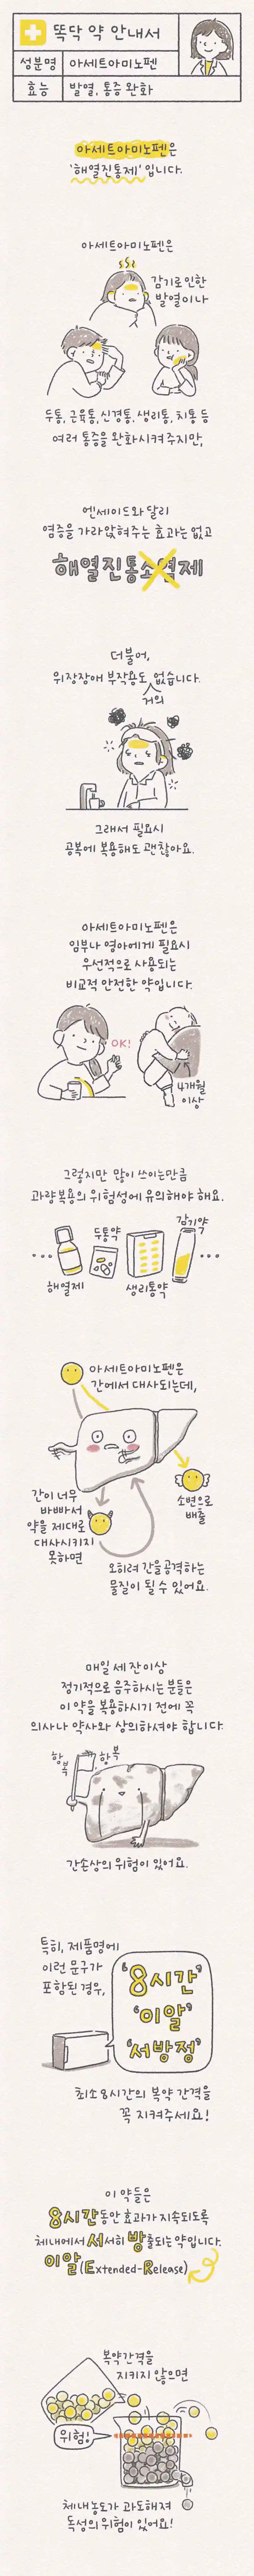 똑닥 약 안내서
성분명 아세트아미노펜
효능 발열, 통증 완화
아세트아미노펜은
'해열진통제' 입니다.
아세트아미노펜은
감기로 인한
발열이나
두통, 근육통, 신경통, 생리통, 치통 등
여러 통증을 완화시켜 주지만,
엔세이드와 달리
염증을 가라앉혀주는 효과는 없고
해열진통소염제
더불어,
위장장애 부작용도 거의 없습니다.
그래서 필요시
공복에 복용해도 괜찮아요.
아세트아미노펜은
임부나 영아에게 필요시
우선적으로 사용되는
비교적 안전한 약입니다.
OK!
4개월
이상
그렇지만 많이 쓰이는만큼
과량복용의 위험성에 유의해야 해요.
해열제
두통약
생리통약
감기약
아세트아미노펜은
간에서 대사되는데,
소변으로
배출
간이 너무
바빠서
약을 제대로
대사시키지
못하면
오히려 간을 공격하는
물질이 될 수 있어요.
매일 세 잔 이상
정기적으로 음주하시는 분들은
이 약을 복용하시기 전에 꼭
의사나 약사와 상의하셔야 합니다.
항복, 항복
간손상의 위험이 있어요.
특히, 제품명에
이런 문구가
포함된 경우,
'8시간'
'이알'
'서방정'
최소 8시간의 복약 간격을
꼭 지켜주세요!
이 약들은
8시간동안 효과가 지속되도록
체내에서 서서히 방출되는 약입니다.
이알 (Extended-Release)
복약간격을
지키지 않으면
위험!
체내농도가 과도해져
독성의 위험이 있어요!